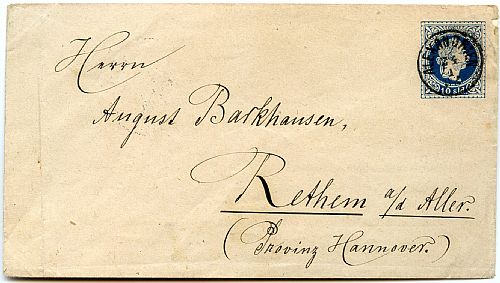 Herrn
August Barkhausen,
Rethem a/d Aller.
(Provinz Hannover.)
10